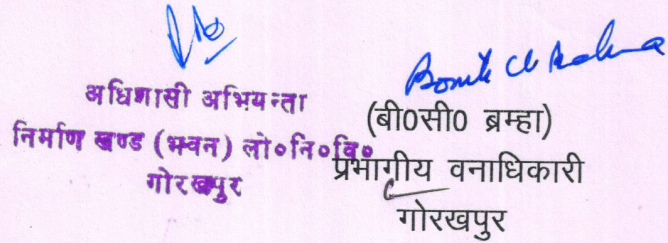 अधिशासी अभियन्ता
निर्माण खण्ड (भवन) लो०नि०वि०
गोरखपुर
(बी0सी0 ब्रम्हा)
प्रभागीय वनाधिकारी
गोरखपुर